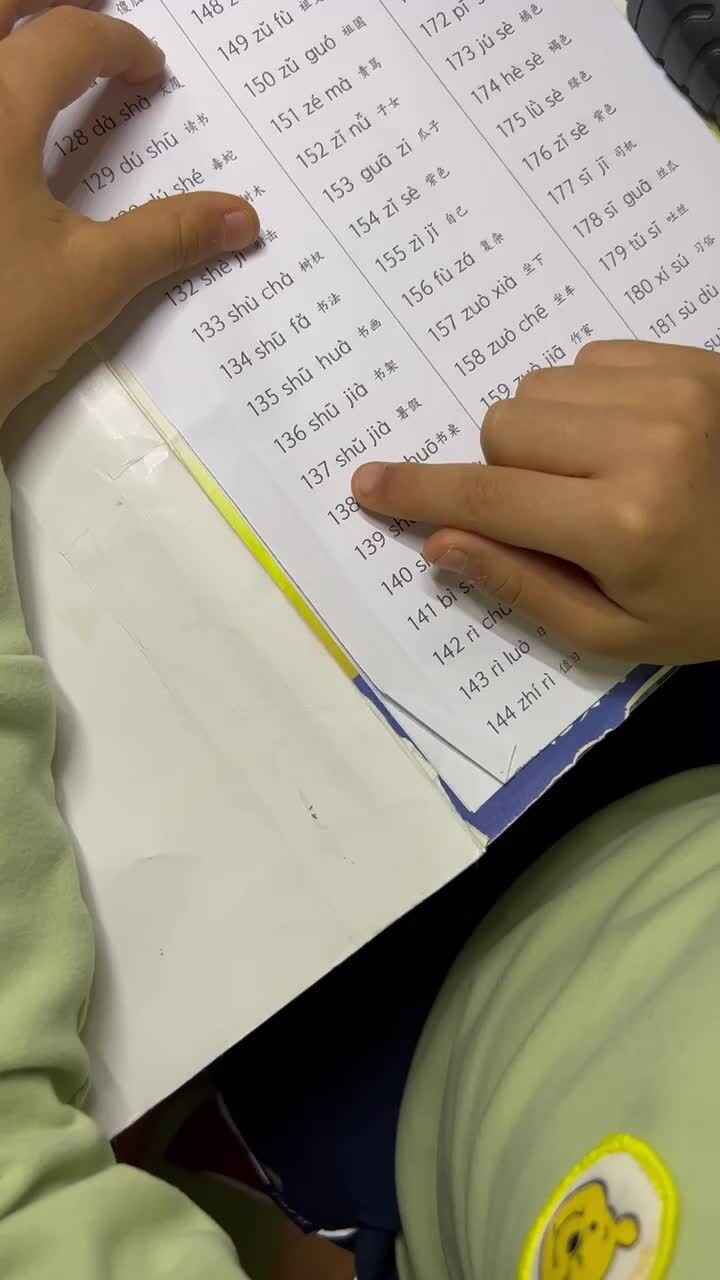 128 dà shà 大厦
129 dú shū 读书
dú shé 毒蛇
树木
132 shè jī 射击
133 shù chà 树杈
134 shū fǎ 书法
135 shū huà 书画
136 shū jià 书架
137 shǔ jià 暑假
138 huō书桌
139 sh
140 s
141 bì
142 rì chū
143 rì luò 日
144 zhí rì 值日
148 z
149 zǔ fù 祖
150 zǔ guó 祖国
151 zé mà 责骂
152 zǐ nǚ 子女
153 guā zǐ 瓜子
154 zǐ sè 紫色
155 zì jǐ 自己
156 fù zá 复杂
157 zuò xià 坐下
158 zuò chē 坐车
159 jiā 作家
172 pī
173 jú sè 橘色
174 hè sè 褐色
175 lǜ sè 绿色
176 zǐ sè 紫色
177 sī jī 司机
178 sī guā 丝瓜
179 tǔ sī 吐丝
180 xí sú 习俗
181 sù dù